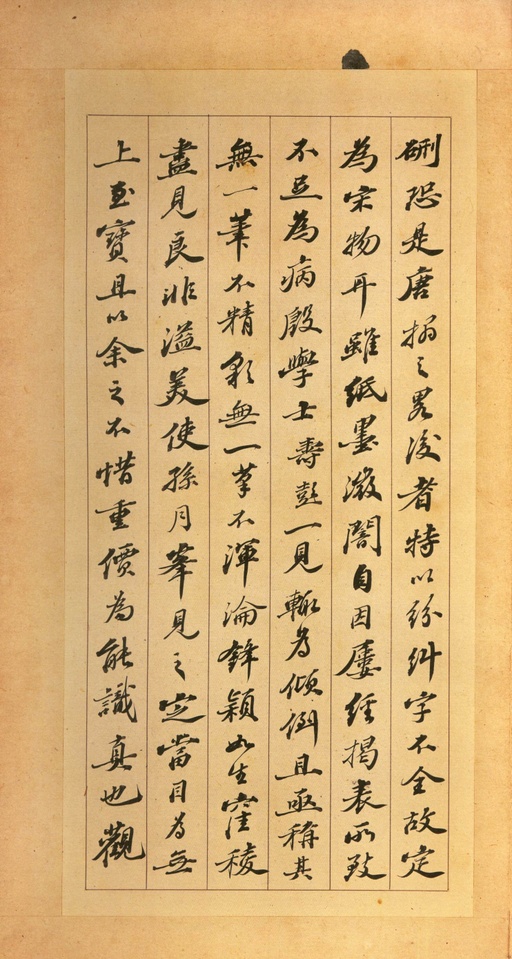 硎恐是唐搨之畧後者特以紛糾字不全故定
為宋物耳雖紙墨滋闇自因屢經揭表所致
不足為病殷學士壽彭一見輒為傾倒且亟稱其
無一筆不精彩無一筆不渾淪鋒穎如生窪稜
盡見良非溢美使孫月峯見之定當目為無
上至寶且以余之不惜重價為能識真也觀